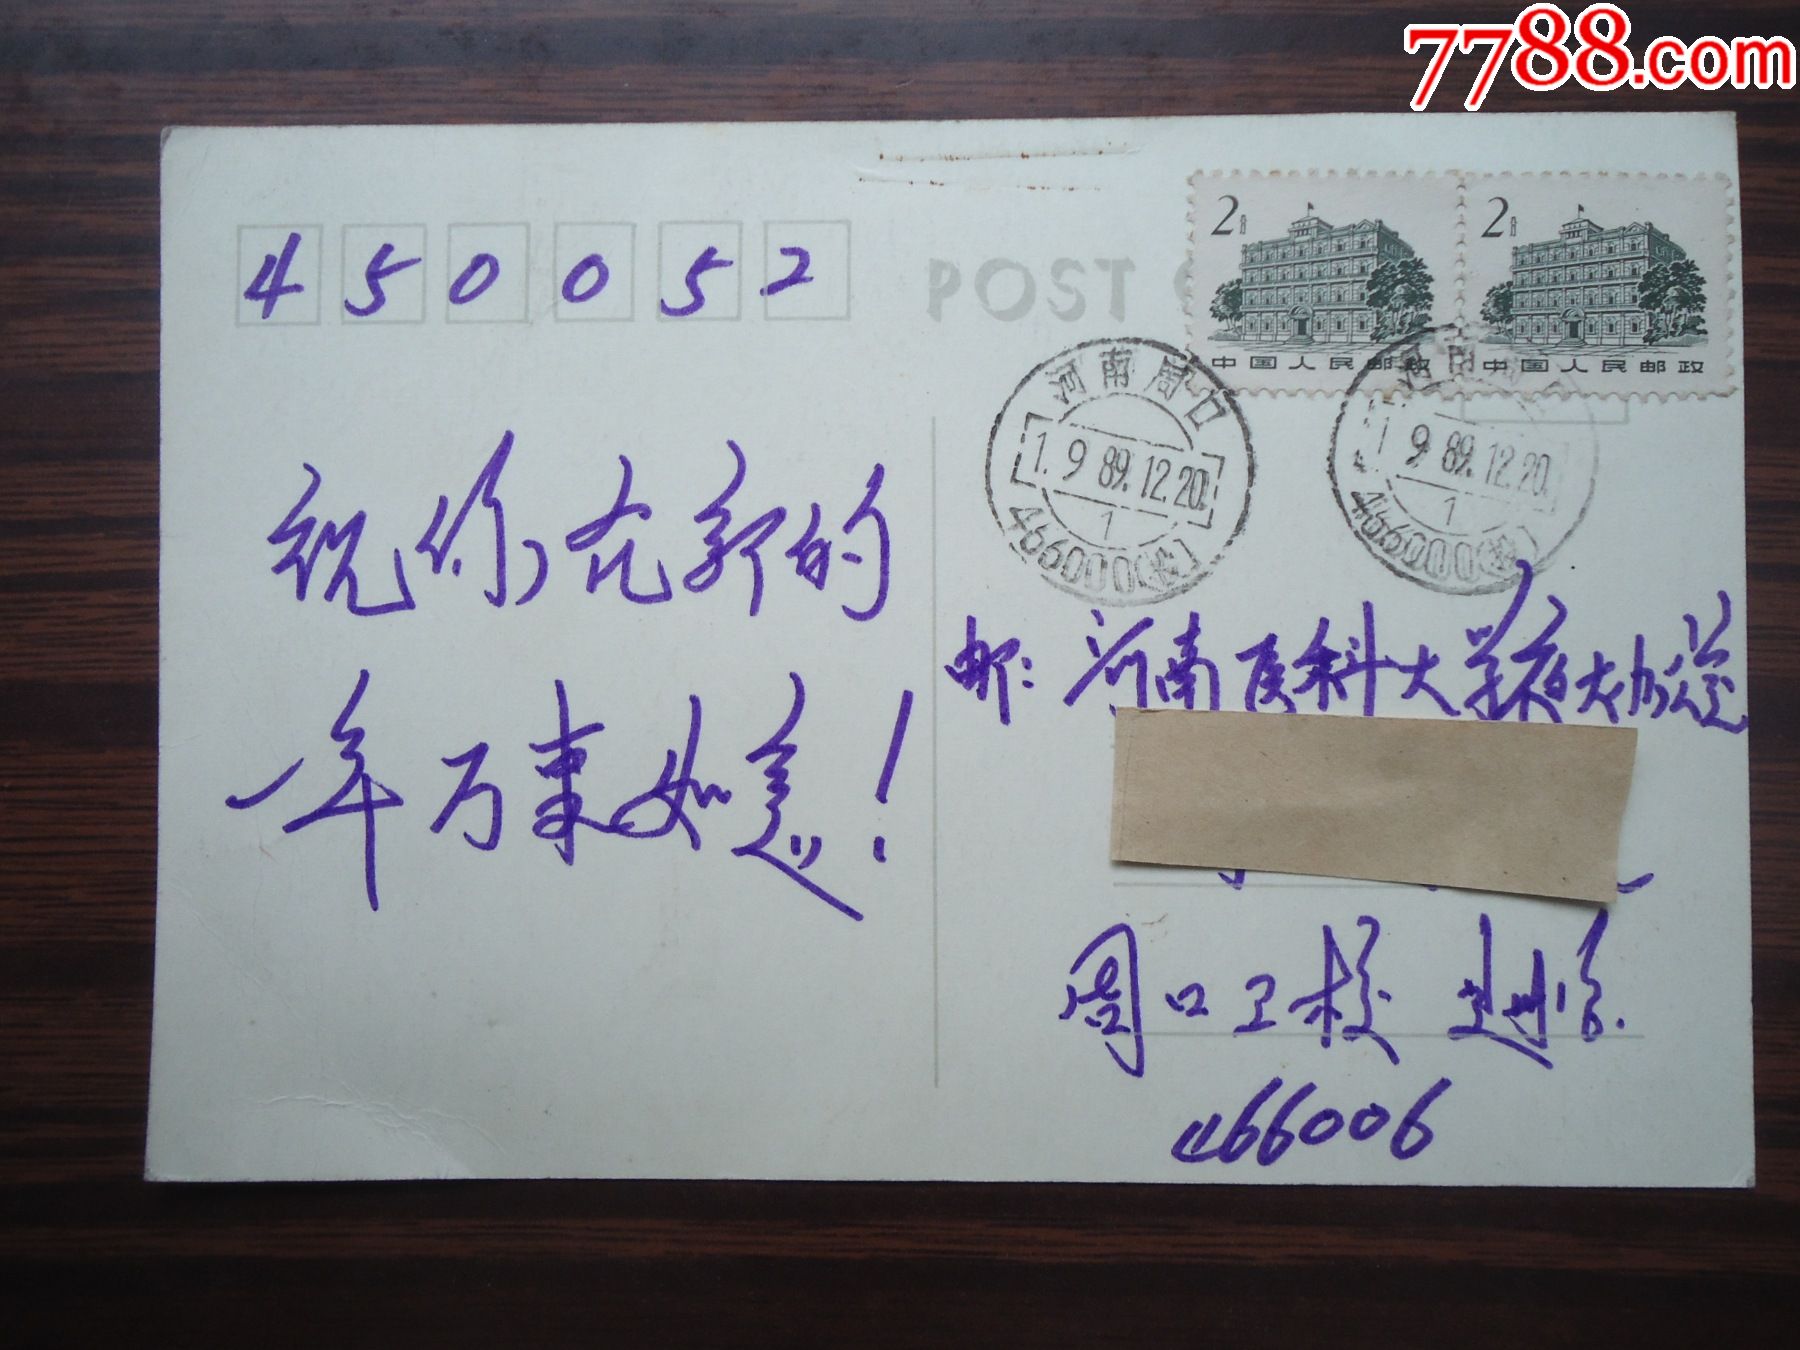 7788.com
450052
POST
2分 2分
中国人民邮政 中国人民邮政
河南周口
1.9 89.12.20.
1
466000(支)
河南
1 9 89.12.20.
1
466000(支)
祝你在新的
一年万事如意!
邮:河南医科大学夜大办公室
周口卫校
466006